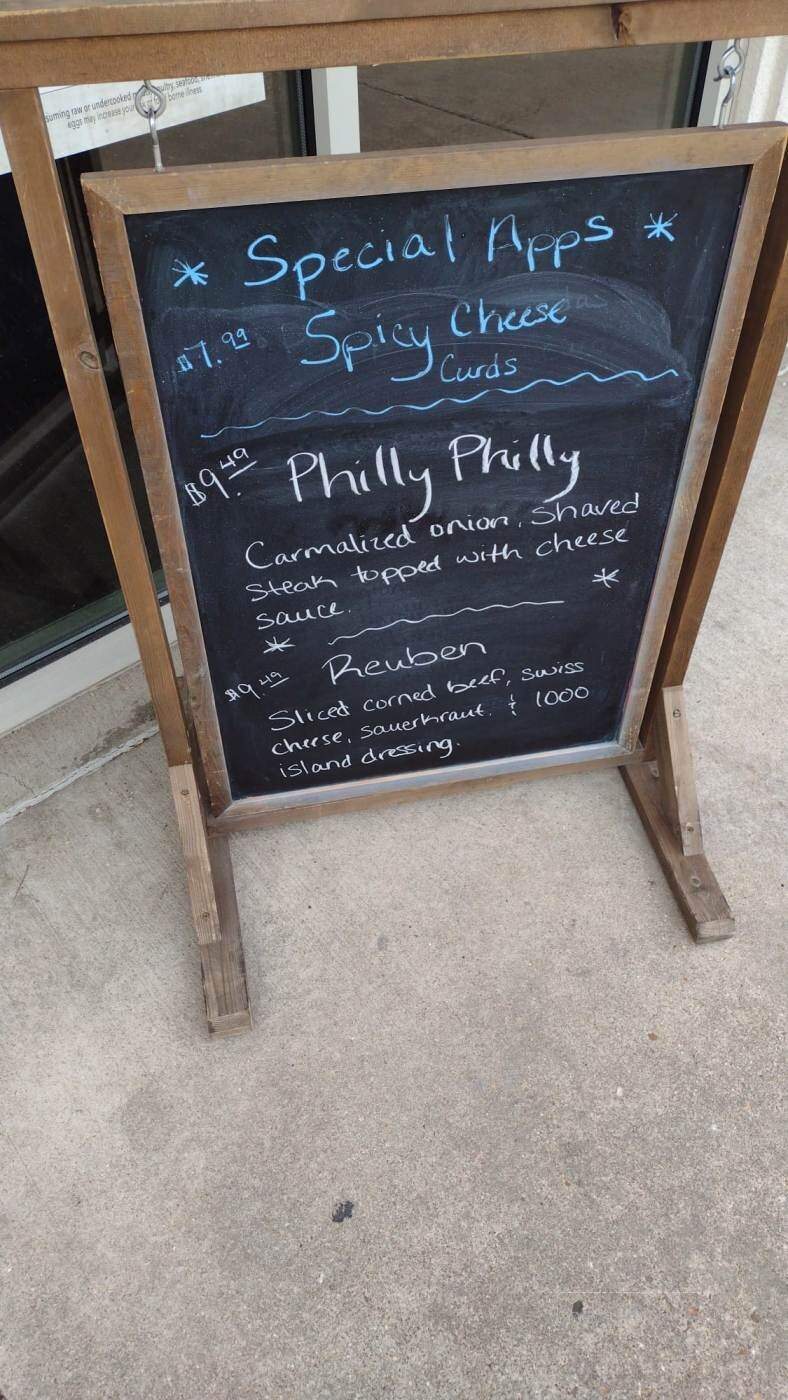 suming raw or undercooked
eggs may increase your
borne illness
* Special Apps *
$7.99 Spicy Cheese
Curds
$9.49 Philly Philly
Carmalized onion, Shaved
steak topped with cheese
sauce.
* *
$9.49 Reuben
Sliced corned beef, swiss
cheese, sauerkraut. & 1000
island dressing.